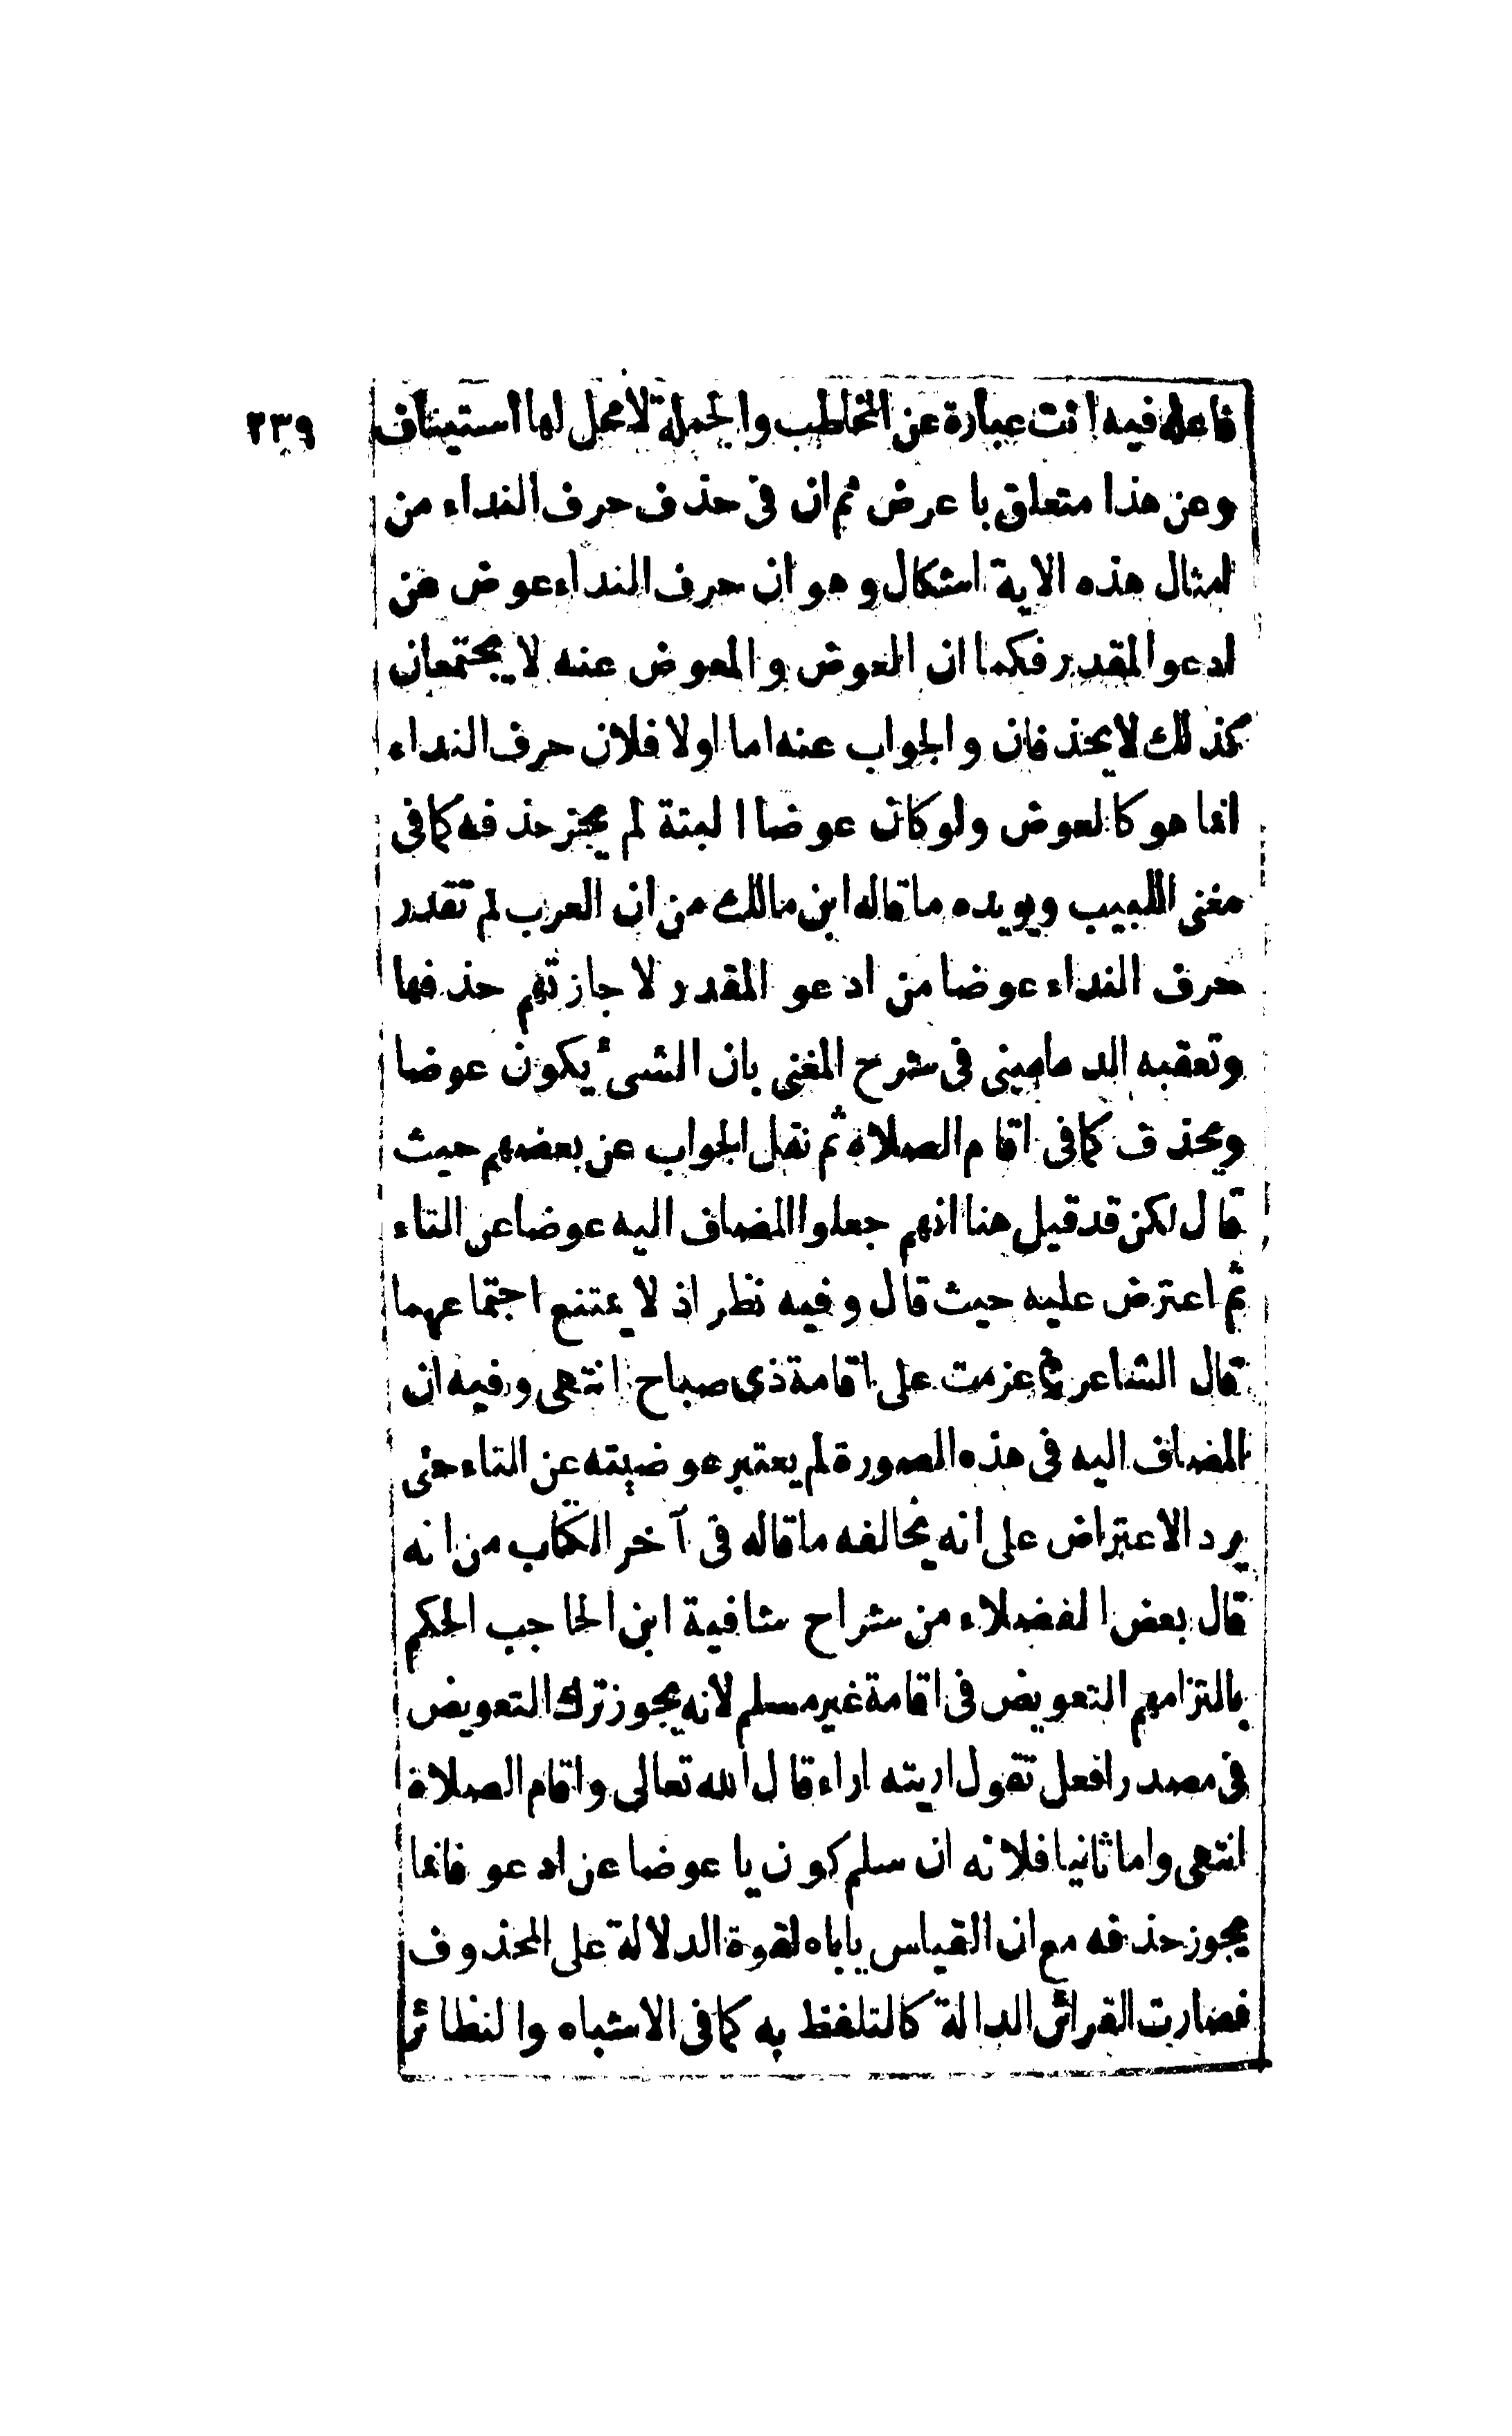 ٢٣٩
فاعله فيه انت عبارة عن المخاطب والجملة لا محل لها استيناف
وعن هذا متعلق باعرض ثم ان فى حذف حرف النداء من
امثال هذه الاية اشكال وهو ان حرف النداء عوض عن
ادعو المقدر فكما ان العوض والمعوض عنه لا يجتمعان
كذلك لا يحذفان والجواب عنه اما اولا فلان حرف النداء
انما هو كالعوض ولو كان عوضا البتة لم يجز حذفه كما فى
مغنى اللبيب ويويده ما قاله ابن مالك من ان العرب لم تقدر
حرف النداء عوضا من ادعو المقدر لاجازتهم حذفها
وتعقبه الدمامينى فى شرح المغنى بان الشىء يكون عوضا
ويحذف كما فى اقام الصلاة ثم نقل الجواب عن بعضهم حيث
قال لكن قد قيل هنا انهم جعلوا المضاف اليه عوضا عن التاء
ثم اعترض عليه حيث قال وفيه نظر اذ لا يمتنع اجتماعهما
قال الشاعر عزمت على اقامة ذى صباح انتهى وفيه ان
المضاف اليه فى هذه الصورة لم يعتبر عوضيته عن التاء حتى
يرد الاعتراض على انه يخالفه ما قاله فى آخر الكتاب من انه
قال بعض الفضلاء من شراح شافية ابن الحاجب الحكم
بالتزامهم التعويض فى اقامة غير مسلم لانه يجوز ترك التعويض
فى مصدر افعل تقول اريته اراء قال الله تعالى واقام الصلاة
انتهى واما ثانيا فلانه ان سلم كون يا عوضا عن ادعو فانما
يجوز حذفه مع ان القياس ياباه لقوة الدلالة على المحذوف
فصارت القرائن الدالة كالتلفظ به كما فى الاشباه والنظائر